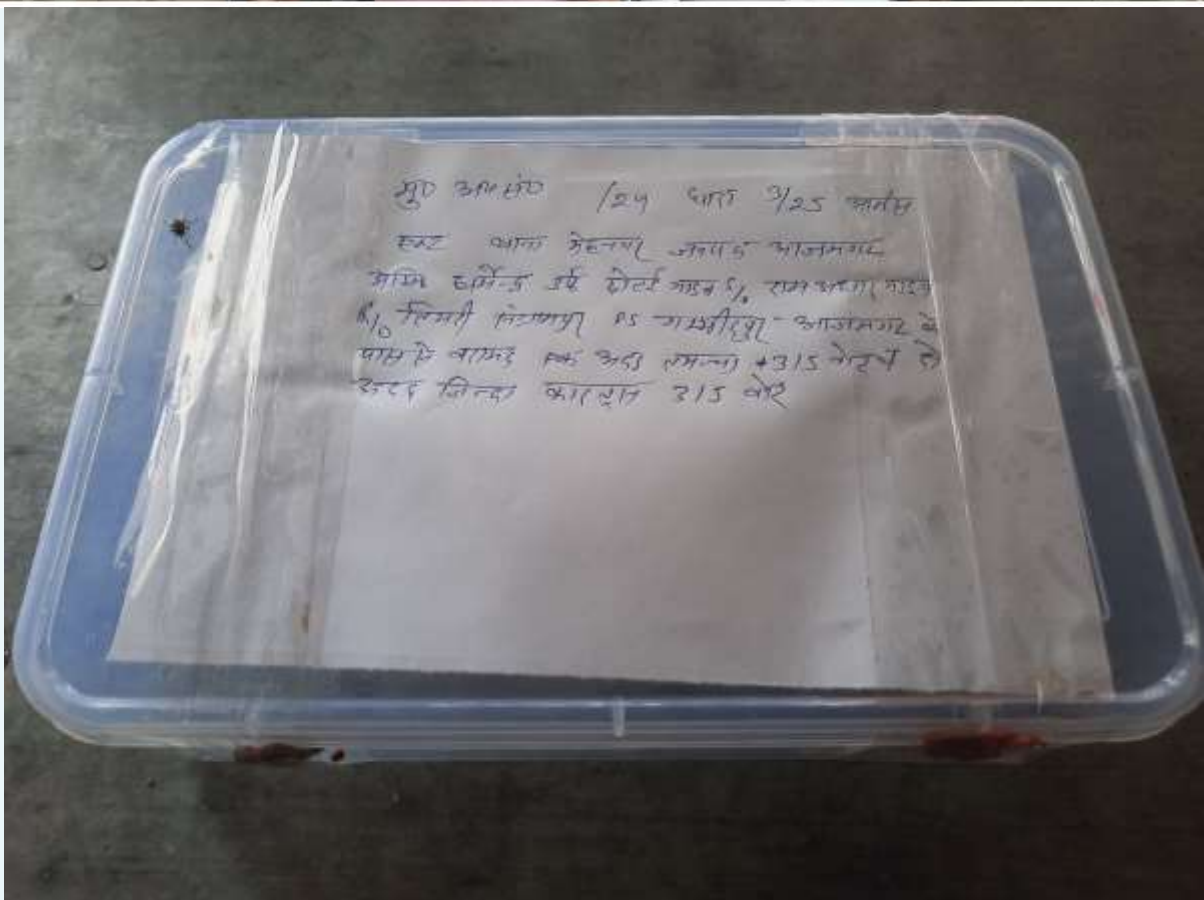 मु0 अ0सं0 /24 धारा 3/25 आर्म्स
एक्ट थाना मेहनगर जनपद आजमगढ़
अभि0 धर्मेन्द्र उर्फ यादव S/o राम अधार यादव
R/o PS गम्भीरपुर आजमगढ़ के
पास से बरामद एक अदद तमन्चा .315 व दो
अदद जिन्दा कारतूस 315 बोर